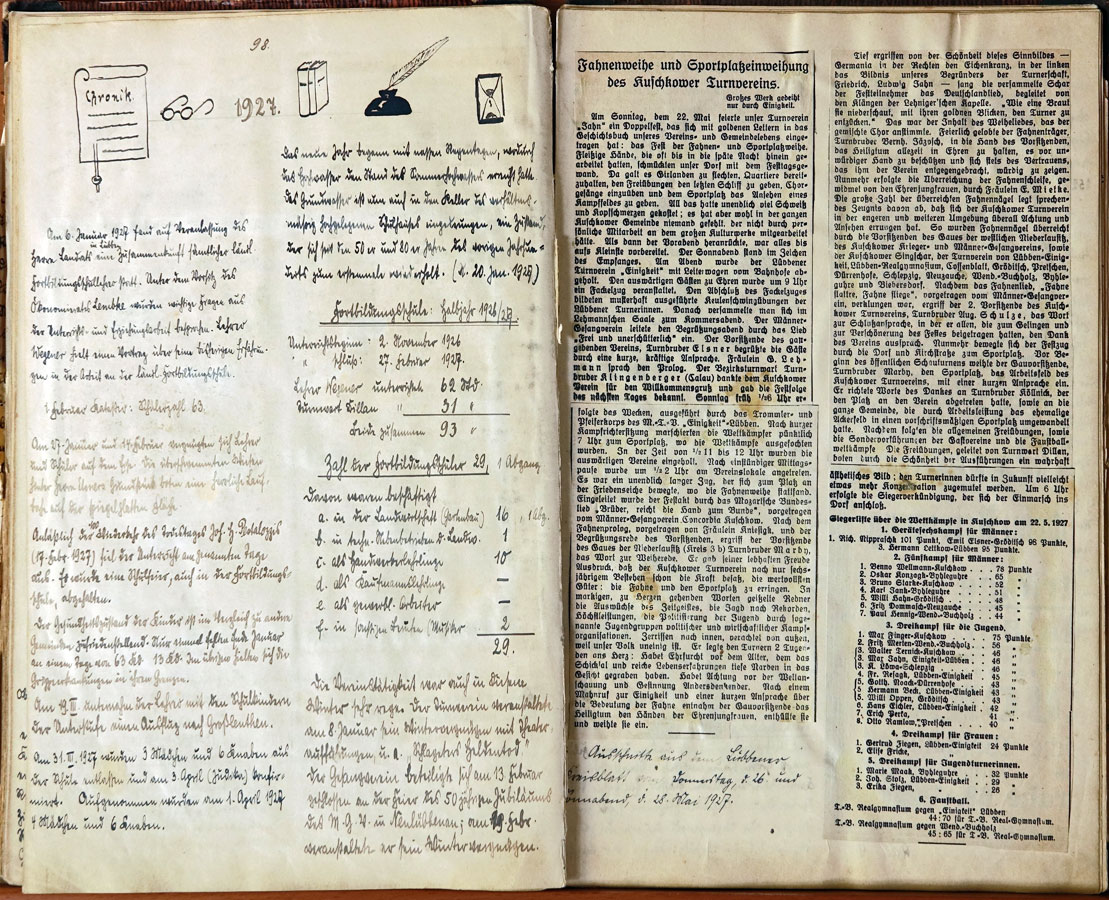 98.
Chronik.
1927.
Am 6. Januar 1927 fand auf Veranlassung des
Herrn Landrats in Lübben eine Zusammenkunft sämtlicher ländl.
Fortbildungsschullehrer statt. Unter dem Vorsitz des
Ökonomierats Lembke wurden wichtige Fragen aus
der Unterrichts- und Erziehungsarbeit besprochen. Lehrer
Wegner hielt einen Vortrag über seine bisherigen
in der Arbeit an der ländl. Fortbildungsschule.
1. Februar Schülerzahl 63.
Am 13. Januar und 14. Februar vergnügten sich Lehrer
und Schüler auf dem Eise. Die überschwemmten Wiesen
boten eine herrliche
auf der spiegelglatten Fläche.
Anläßlich der 100. Wiederkehr des Todestages Joh. H. Pestalozzis
(17. Febr. 1927) fiel der Unterricht am genannten Tage
aus. Es wurde eine Schulfeier, auch in der Fortbildungs-
schule, abgehalten.
Der Gesundheitszustand der Kinder ist im Vergleich zu andern
Gemeinden zufriedenstellend. Nur einmal fehlten Ende Januar
an einem Tage von 63 Kd. 13 Kd. Im übrigen hielten sich die
Grippeerkrankungen in ihren Grenzen.
Am 19. III. unternahm der Lehrer mit den Schulkindern
der Unterstufe einen Ausflug nach Großleuthen.
Am 31. III. 1927 wurden 3 Mädchen und 6 Knaben aus
der Schule entlassen und am 3. April (Judika) konfir-
miert. Aufgenommen wurden am 1. April 1927
4 Mädchen und 6 Knaben.
Das neue Jahr begann mit nassen Regentagen, wodurch
das Hochwasser den Stand des Sommerhochwassers erreicht hatte.
Das Grundwasser ist nun auch in den Keller des verhältnis-
mässig hochgelegenen Schulhauses eingedrungen, ein Zustand,
der sich seit den 50er und 80er Jahren des vorigen Jahrhun-
derts zum erstenmale wiederholt. (d. 20. Jan. 1927)
Fortbildungsschule: Halbjahr 1926/27.
Unterrichtsbeginn: 2. November 1926
" schluß: 27. Februar 1927.
Lehrer Wegner unterrichtet 62 Std.
Turnwart Dillan " 31 "
beide zusammen 93 "
Zahl der Fortbildungsschüler 29, 1 Abgang.
Davon waren beschäftigt
a. in der Landwirtschaft (Gartenbau) 16, 1 Abg.
b. in techn. Nebenbetrieben d. Landw. 1
c. als Handwerkerlehrling 10
d. als Kaufmannslehrling —
e. als gewerbl. Arbeiter —
f. in sonstigen Berufen (Müsiker 2
29.
Die Vereinstätigkeit war auch in diesem
Winter sehr rege. Der Turnverein veranstaltete
am 8. Januar sein Wintervergnügen mit Theater-
aufführungen u. a. „Schlageters Heldentod“
Der Gesangverein beteiligte sich am 13. Februar
geschlossen an der Feier des 50 jährigen Jubiläums
des M. G. V. in Neulübbenau; am 19. Febr.
veranstaltete er sein Wintervergnügen.
Fahnenweihe und Sportplatzeinweihung
des Kuschkower Turnvereins.
Großes Werk gedeiht
nur durch Einigkeit.
Am Sonntag, dem 22. Mai feierte unser Turnverein
„Jahn“ ein Doppelfest, das sich mit goldenen Lettern in das
Geschichtsbuch unseres Vereins- und Gemeindelebens einge-
tragen hat: das Fest der Fahnen- und Sportplatzweihe.
Fleißige Hände, die oft bis in die späte Nacht hinein ge-
arbeitet hatten, schmückten unser Dorf mit dem Festtagsge-
wand. Da galt es Girlanden zu flechten, Quartiere bereit-
zuhalten, den Freiübungen den letzten Schliff zu geben, Chor-
gesänge einzuüben und dem Sportplatz das Ansehen eines
Kampffeldes zu geben. All das hatte unendlich viel Schweiß
und Kopfschmerzen gekostet; es hat aber wohl in der ganzen
Kuschkower Gemeinde niemand gefehlt, der nicht durch per-
sönliche Mitarbeit an dem großen Kulturwerke mitgearbeitet
hätte. Als dann der Vorabend heranrückte, war alles bis
aufs Kleinste vorbereitet. Der Sonnabend stand im Zeichen
des Empfanges. Am Abend wurde der Lübbener
Turnverein „Einigkeit“ mit Leiterwagen vom Bahnhofe ab-
geholt. Den auswärtigen Gästen zu Ehren wurde um 9 Uhr
ein Fackelzug veranstaltet. Den Abschluß des Fackelzuges
bildeten musterhaft ausgeführte Keulenschwingübungen der
Lübbener Turnerinnen. Danach versammelte man sich im
Lehmannschen Saale zum Kommersabend. Der Männer-
Gesangverein leitete den Begrüßungsabend durch das Lied
„Frei und unerschütterlich“ ein. Der Vorsitzende des gast-
gebenden Vereins, Turnbruder Elsner begrüßte die Gäste
durch eine kurze, kräftige Ansprache. Fräulein G. Leh-
mann sprach den Prolog. Der Bezirksturnwart Turn-
bruder Klingenberger (Calau) dankte dem Kuschkower
Verein für den Willkommensgruß und gab die Festfolge
des nächsten Tages bekannt. Sonntag früh ½6 Uhr er-
folgte das Wecken, ausgeführt durch das Trommler- und
Pfeiferkorps des M.-T.-V. „Einigkeit“-Lübben. Nach kurzer
Kampfrichtersitzung marschierten die Wettkämpfer pünktlich
7 Uhr zum Sportplatz, wo die Wettkämpfe ausgefochten
wurden. In der Zeit von ½11 bis 12 Uhr wurden die
auswärtigen Vereine eingeholt. Nach einstündiger Mittags-
pause wurde um ½2 Uhr am Vereinslokale angetreten.
Es war ein unendlich langer Zug, der sich zum Platz an
der Friedenseiche bewegte, wo die Fahnenweihe stattfand.
Eingeleitet wurde der Festakt durch das Magersche Bundes-
lied „Brüder, reicht die Hand zum Bunde“, vorgetragen
vom Männer-Gesangverein Concordia Kuschkow. Nach dem
Fahnenprolog, vorgetragen von Fräulein Kniestigk, und der
Begrüßungsrede des Vorsitzenden, ergriff der Vorsitzende
des Gaues der Niederlausitz (Kreis 3 b) Turnbruder Mardy,
das Wort zur Weiherede. Er gab seiner lebhaften Freude
Ausdruck, daß der Kuschkower Turnverein nach nur sechs-
jährigem Bestehen schon die Kraft besaß, die wertvollsten
Güter: die Fahne und den Sportplatz zu erringen. In
markigen, zu Herzen gehenden Worten geißelte Redner
die Auswüchse des Zeitgeistes, die Jagd nach Rekorden,
Höchstleistungen, die Politisierung der Jugend durch soge-
nannte Jugendgruppen politischer und wirtschaftlicher Kampf-
organisationen. Zerrissen nach innen, verachtet von außen,
weil unser Volk uneinig ist. Er legte den Turnern 2 Tugen-
den ans Herz: Habet Ehrfurcht vor dem Alter, dem das
Schicksal und reiche Lebenserfahrungen tiefe Narben in das
Gesicht gegraben haben. Habet Achtung vor der Weltan-
schauung und Gesinnung Andersdenkender. Nach einem
Mahnruf zur Einigkeit und einer kurzen Ansprache über
die Bedeutung der Fahne entnahm der Gauvorsitzende das
Heiligtum den Händen der Ehrenjungfrauen, enthüllte sie
und weihte sie ein.
Ausschnitte aus dem Lübbener
Kreisblatt vom Donnerstag, d. 26 und
Sonnabend, d. 28. Mai 1927.
Tief ergriffen von der Schönheit dieses Sinnbildes —
Germania in der Rechten den Eichenkranz, in der linken
das Bildnis unseres Begründers der Turnerschaft,
Friedrich, Ludwig Jahn — sang die versammelte Schar
der Festteilnehmer das Deutschlandlied, begleitet von
den Klängen der Lehniger'schen Kapelle. „Wie eine Braut
sie niederschaut, mit ihren goldnen Blicken, den Turner zu
entzücken.“ Das war der Inhalt des Weiheliedes, das der
gemischte Chor anstimmte. Feierlich gelobte der Fahnenträger,
Turnbruder Bernh. Jäzosch, in die Hand des Vorsitzenden,
das Heiligtum allezeit in Ehren zu halten, es vor un-
würdiger Hand zu beschützen und sich stets des Vertrauens,
das ihm der Verein entgegenbracht, würdig zu zeigen.
Nunmehr erfolgte die Überreichung der Fahnenschleife, ge-
widmet von den Ehrenjungfrauen, durch Fräulein E. Mielke.
Die große Zahl der überreichten Fahnennägel legt sprechen-
des Zeugnis davon ab, daß sich der Kuschkower Turnverein
in der engeren und weiteren Umgebung überall Achtung und
Ansehen errungen hat. So wurden Fahnennägel überreicht
durch die Vorsitzenden des Gaues der westlichen Niederlausitz,
des Kuschkower Krieger- und Männer-Gesangvereins, sowie
der Kuschkower Singschar, der Turnverein von Lübben-Einig-
keit, Lübben-Realgymnasium, Cossenblatt, Gröditsch, Pretschen,
Dürrenhofe, Schlepzig, Neuzauche, Wend.-Buchholz, Byhle-
guhre und Biebersdorf. Nachdem das Fahnenlied, „Fahne
flattre, Fahne fliege“, vorgetragen vom Männer-Gesangver-
ein, verklungen war, ergriff der 2. Vorsitzende des Kusch-
kower Turnvereins, Turnbruder Aug. Schulze, das Wort
zur Schlußansprache, in der er allen, die zum Gelingen und
zur Verschönerung des Festes beigetragen hatten, den Dank
des Vereins aussprach. Nunmehr bewegte sich der Festzug
durch die Dorf- und Kirchstraße zum Sportplatz. Vor Be-
ginn des öffentlichen Schauturnens weihte der Gauvorsitzende,
Turnbruder Mardy, den Sportplatz, das Arbeitsfeld des
Kuschkower Turnvereins, mit einer kurzen Ansprache ein.
Er richtete Worte des Dankes an Turnbruder Köllnick, der
den Platz an den Verein abgetreten hatte, sowie an die
ganze Gemeinde, die durch Arbeitsleistung das ehemalige
Ackerfeld in einen vorschriftsmäßigen Sportplatz umgewandelt
hatte. Nachdem folgten die allgemeinen Freiübungen, sowie
die Sondervorführungen der Gastvereine und die Faustball-
wettkämpfe. Die Freiübungen, geleitet von Turnwart Dillan,
boten durch die Schönheit der Ausführungen ein wahrhaft
ästhetisches Bild; den Turnerinnen dürfte in Zukunft vielleicht
etwas mehr Konzentration zugemutet werden. Um 6 Uhr
erfolgte die Siegerverkündigung, der sich der Einmarsch ins
Dorf anschloß.
Siegerliste über die Wettkämpfe in Kuschkow am 22. 5. 1927
1. Gerätesechskampf für Männer:
1. Rich. Nippraschk 101 Punkt, Emil Elsner-Gröditsch 98 Punkte,
3. Hermann Lettkow-Lübben 95 Punkte.
2. Fünfkampf für Männer:
1. Benno Wellmann-Kuschkow . . 78 Punkte
2. Oskar Konzagk-Byhleguhre . . 65 "
3. Bruno Starke-Kuschkow . . 52 "
4. Karl Jank-Byhleguhre . . 51 "
5. Willi Hahn-Gröditsch . . 48 "
6. Fritz Dommasch-Neuzauche . . 45 "
7. Paul Hennig-Wend.-Buchholz . . 44 "
3. Dreikampf für die Jugend.
1. Max Finger-Kuschkow . . 75 Punkte
2. Fritz Merten-Wend.-Buchholz . . 56 "
3. Walter Ternick-Kuschkow . . 46 "
3. Max Jahn, Einigkeit-Lübben . 46 "
3. K. Löwa-Schlepzig . . 46 "
4. Fr. Resagk, Lübben-Einigkeit . 45 "
5. Gotth. Noack-Dürrenhofe . . 43 "
5. Hermann Beck, Lübben-Einigkeit 43 "
5. Willi Opper, Gröditsch . . 43 "
6. Hans Eichler, Lübben-Einigkeit . 42 "
7. Erich Perka, " 41 "
8. Otto Ramlow, Pretschen . . 40 "
4. Dreikampf für Frauen:
1. Gertrud Fiegen, Lübben-Einigkeit 24 Punkte
2. Else Fricke,
5. Dreikampf für Jugendturnerinnen.
1. Marie Maak, Byhleguhre . . 32 Punkte
2. Joh. Stolz, Lübben-Einigkeit . . 29 "
3. Erika Fiegen, " 26 "
6. Faustball.
T.-V. Realgymnasium gegen „Einigkeit“ Lübben
44:70 für T.-V. Real-Gymnasium.
T.-V. Realgymnasium gegen Wend.-Buchholz
45:65 für T.-V. Real-Gymnasium.